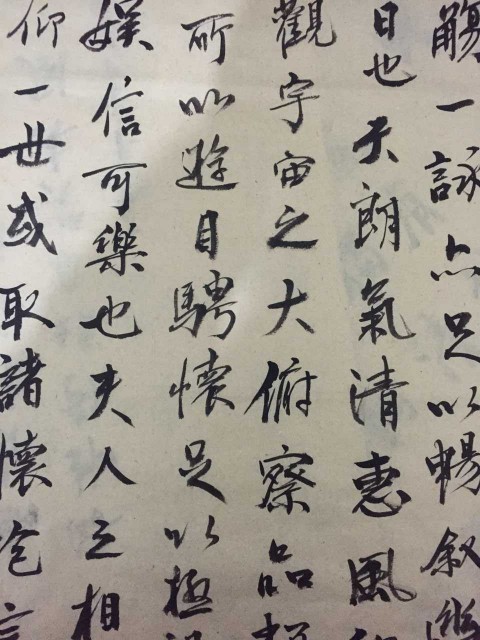 觴一詠亦足以暢敘幽
日也天朗氣清惠風和
觀宇宙之大俯察品類
所以遊目騁懷足以極
娛信可樂也夫人之相
仰一世或取諸懷抱言